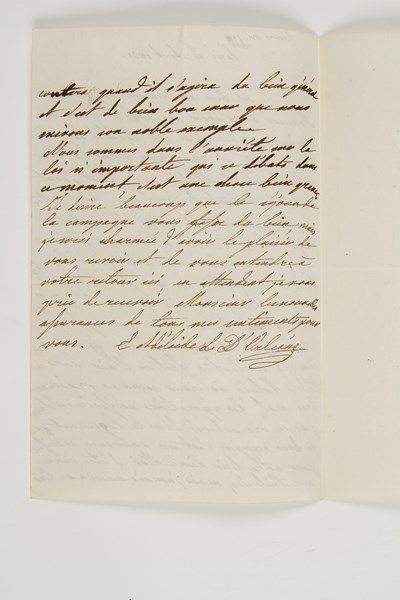 contre quand il s'agira du bien général
et c'est de bien bon cœur que nous
suivons son noble exemple
Nous sommes dans l'anxiété sur la
loi si importante qui se débat dans
ce moment c'est une chose bien grave
Je désire beaucoup que le séjour de
la campagne vous fasse du bien mais
je serai charmée d'avoir le plaisir de
vous revoir et de vous entendre à
votre retour ici, en attendant je vous
prie de recevoir Monsieur
assurances de tous mes sentiments pour
vous. E Adélaïde L D'Orléans